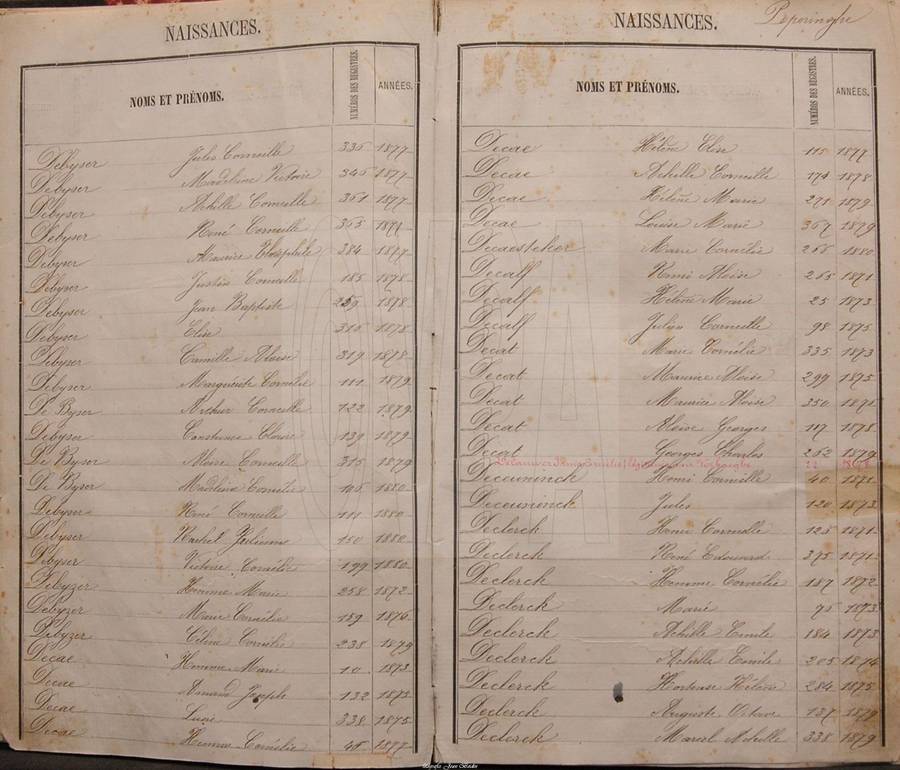 NAISSANCES.
NOMS ET PRÉNOMS. NUMÉROS DES REGISTRES. ANNÉES.
Debyser Jules Corneille 335 1877
Debyser Madeleine Victoire 345 1877
Debyser Achille Corneille 361 1877
Debyser René Corneille 365 1877
Debyser Maurice Théophile 384 1877
Debyser Justin Corneille 185 1878
Debyser Jean Baptiste 259 1878
Debyser Elise 316 1878
Debyser Camille Aloïse 319 1878
Debyser Marguerite Cornélie 111 1879
De Byser Arthur Corneille 122 1879
Debyser Constance 139 1879
De Byser Corneille 315 1879
De Byser Cornélie 105 1880
Debyser René Corneille 111 1880
Debyser Rachel 150 1880
Debyser Victorie Cornélie 199 1880
Debyzer Hemma Marie 258 1872
Debyzer Marie Cornélie 189 1876
Debyzer Céline Cornélie 238 1879
Decae Hemma Marie 10 1873
Decae Amand Joseph 132 1873
Decae Lucie 338 1875
Decae Hemma Cornélie 45 1877
NAISSANCES. Poperinghe
NOMS ET PRÉNOMS. NUMÉROS DES REGISTRES. ANNÉES.
Decae Hélène Elise 115 1877
Decae Achille Corneille 174 1878
Decae Hélène Marie 271 1879
Decae Louise Marie 367 1879
Decaesteker Marie Cornélie 266 1880
Decalf Remi Aloïse 265 1871
Decalf Hélène Marie 25 1873
Decalf Julien Corneille 98 1875
Decat Marie Cornélie 335 1873
Decat Maurice Aloïse 299 1875
Decat Maurice Aloïse 350 1871
Decat Aloïse Georges 117 1878
Decat Georges Charles 262 1879
22 1878
Deceuninck Henri Corneille 40 1871
Deceuninck Jules 120 1873
Declerck Henri Corneille 128 1871
Declerck René Edouard 375 1871
Declerck Hemma Cornélie 187 1872
Declerck Marie 75 1873
Declerck Achille Emile 184 1873
Declerck Achille Emile 205 1874
Declerck Hortense Hélène 284 1875
Declerck Auguste Octave 137 1879
Declerck Marcel Achille 338 1879